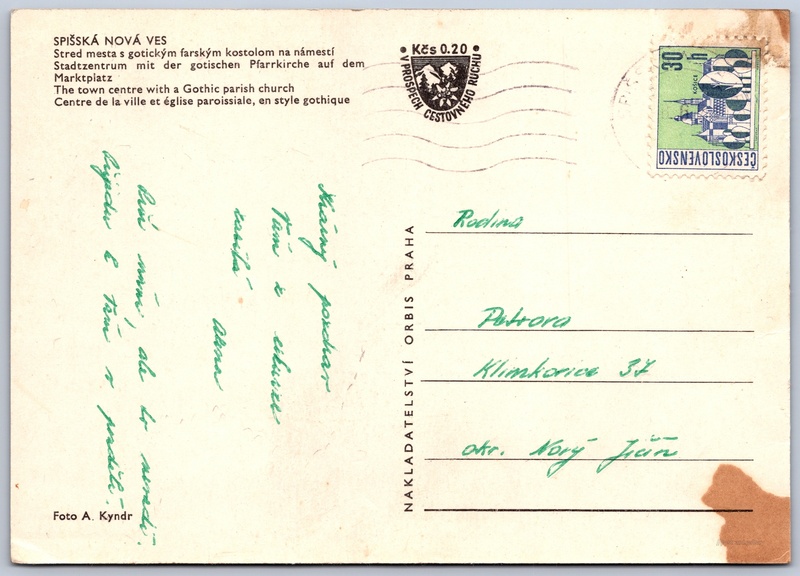 SPIŠSKÁ NOVÁ VES
Stred mesta s gotickým farským kostolom na námestí
Stadtzentrum mit der gotischen Pfarrkirche auf dem
Marktplatz
The town centre with a Gothic parish church
Centre de la ville et église paroissiale, en style gothique
• Kčs 0.20 •
V PROSPECH CESTOVNÉHO RUCHU
30
h
KOŠICE
ČESKOSLOVENSKO
Krásný pozdrav
Vám z
zasílá
Alena
Prší nám, ale to nevadí.
Přijedu k Vám v pondělí.
NAKLADATELSTVÍ ORBIS PRAHA
Rodina
Petrova
Klimkovice 37
okr. Nový Jičín
Foto A. Kyndr